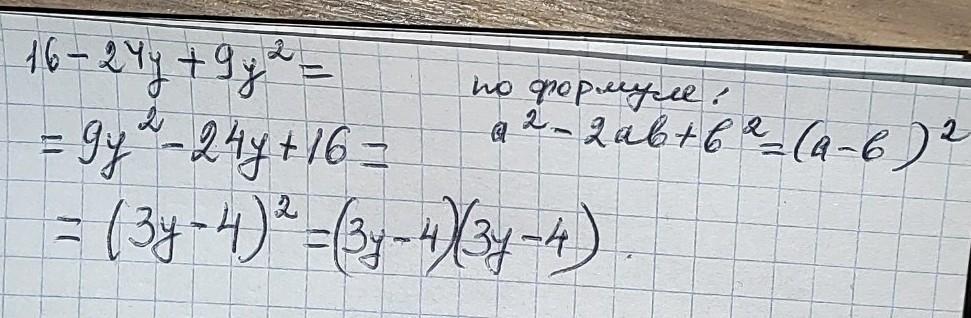 16 - 24y + 9y² =
по формуле:
= 9y² - 24y + 16 =
a² - 2ab + b² = (a - b)²
= (3y - 4)² = (3y - 4)(3y - 4).